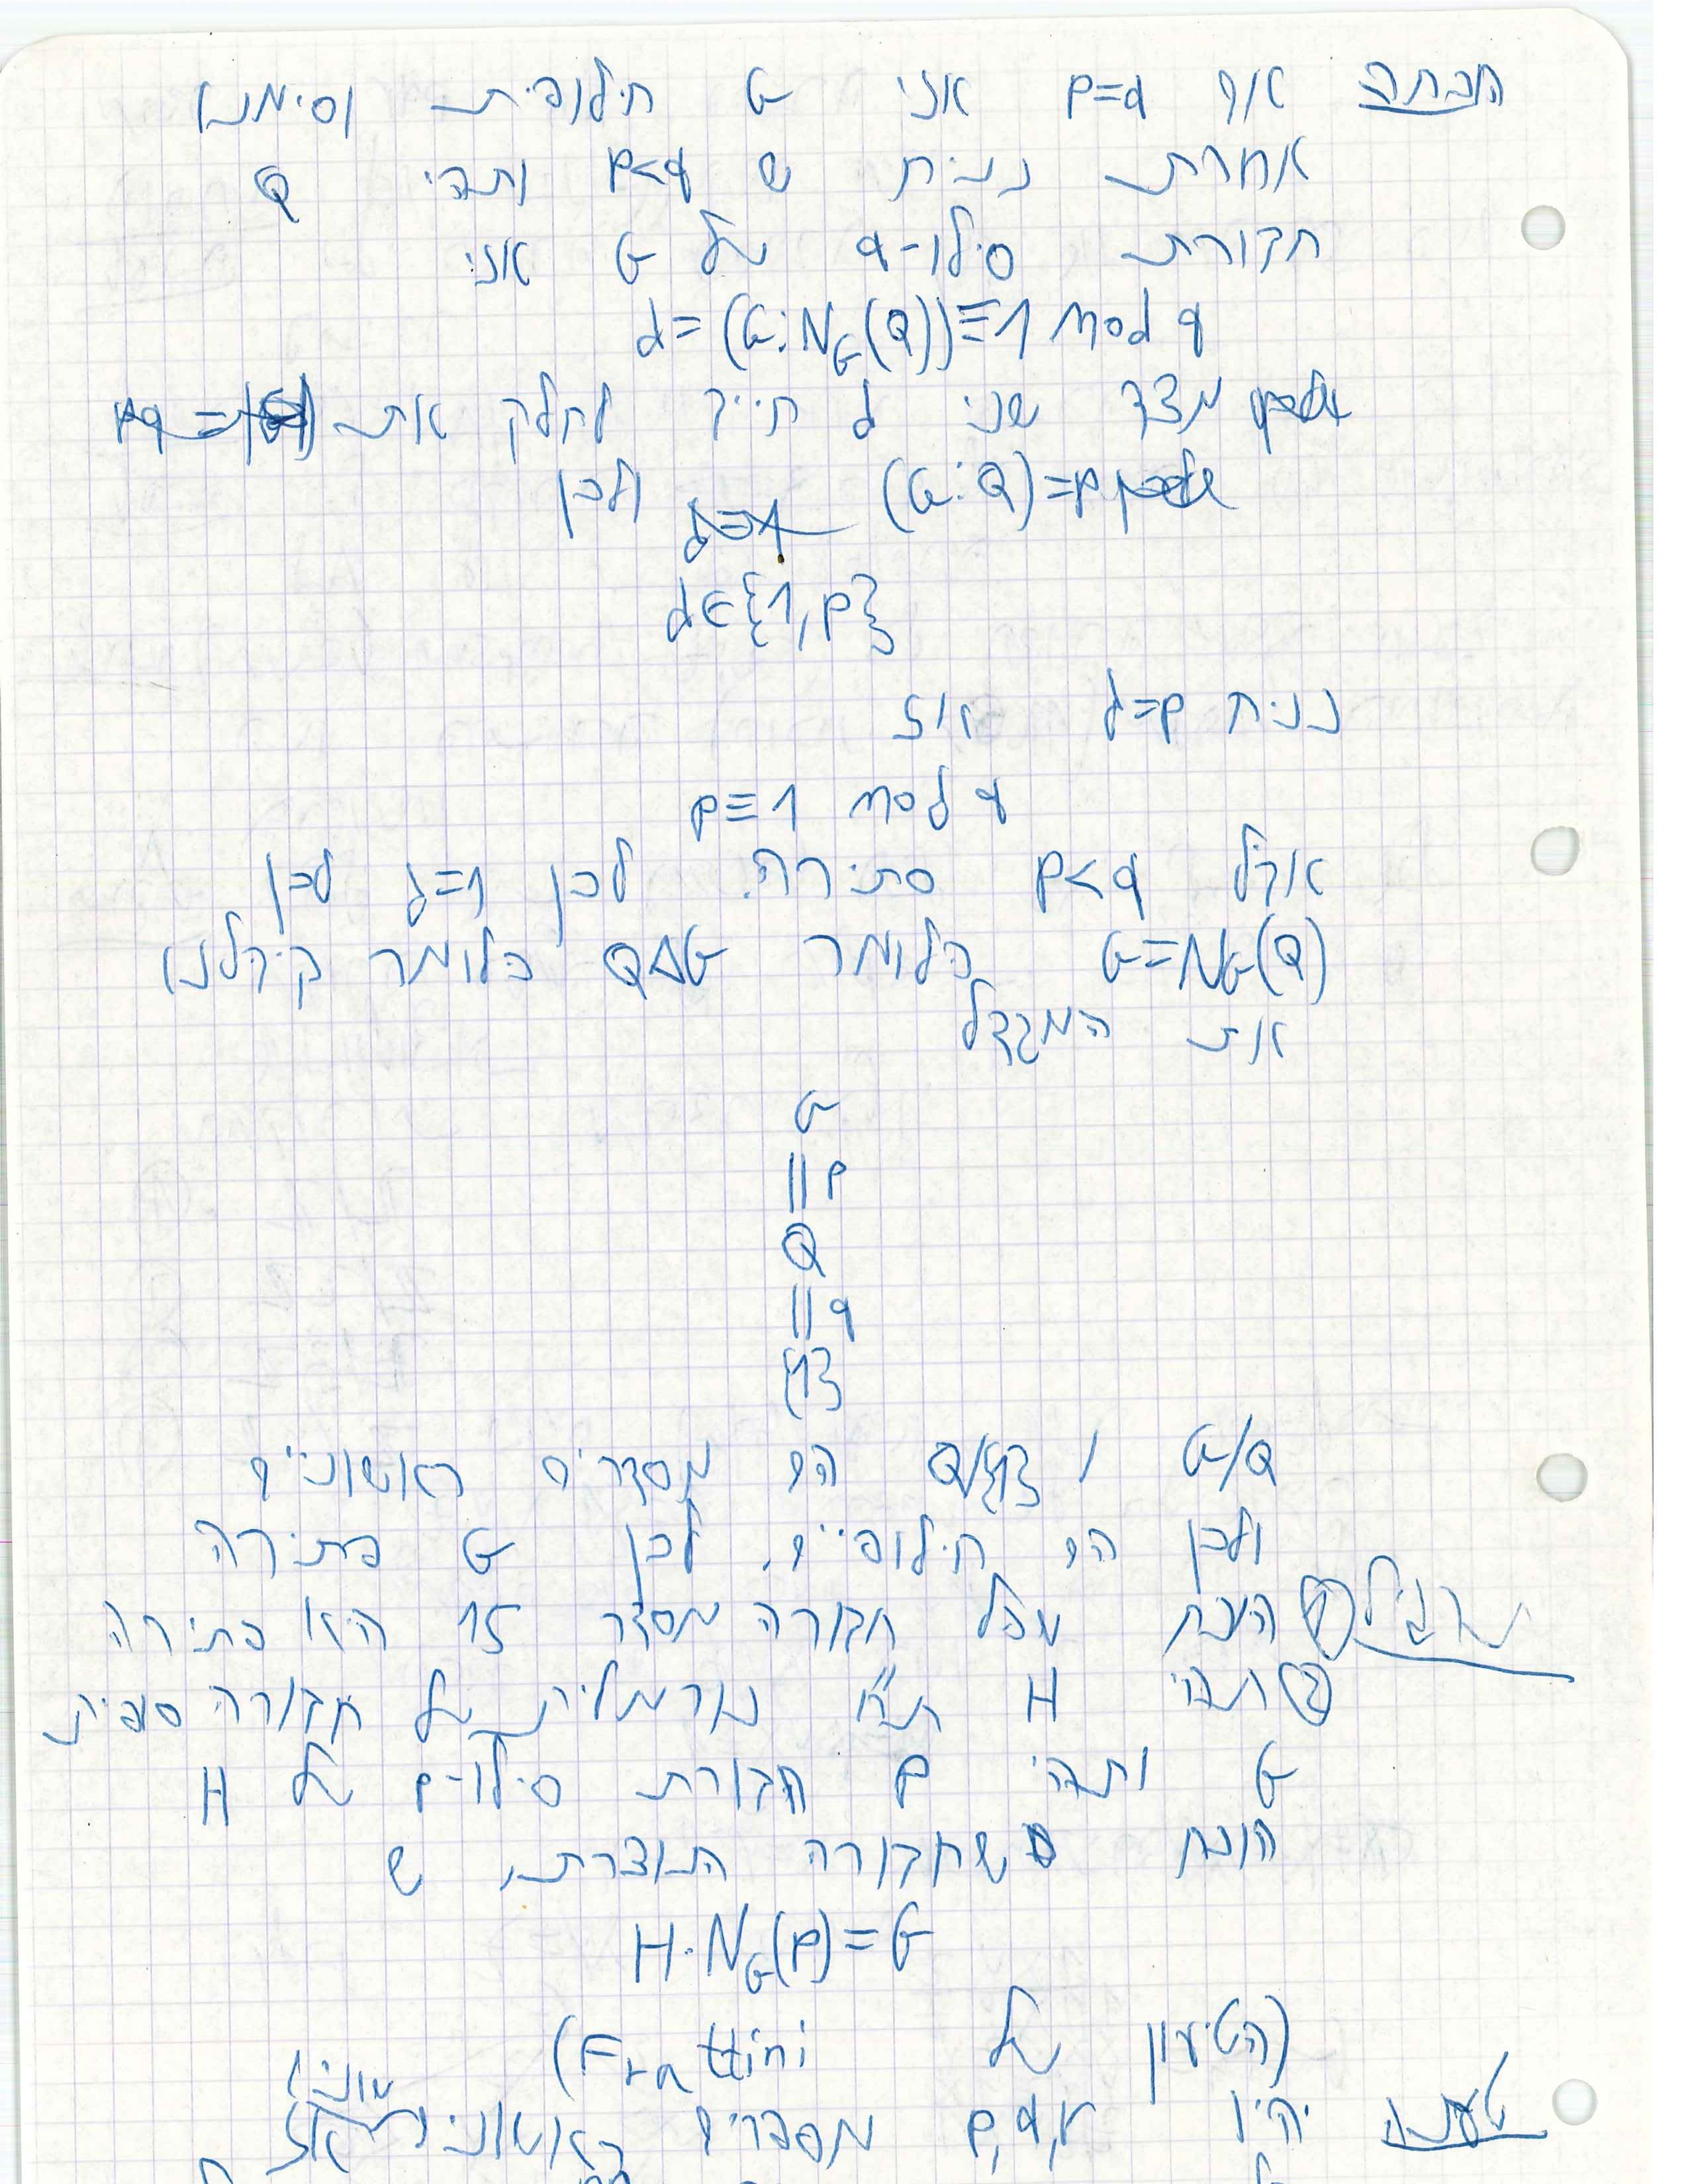 הוכחה אם p=q אזי G חילופית וסיימנו
אחרת נניח ש p<q ותהי Q
חבורת סילו-q של G אזי
d=(G:N_G(Q))≡1 mod q
מצד שני d חייב לחלק את
(G:Q)=p ולכן
d∈{1,p}
נניח d=p אז
p≡1 mod q
אבל p<q סתירה. לכן d=1 לכן
G=N_G(Q) כלומר Q◁G כלומר קיבלנו
את המגדל
G
||p
Q
||q
{1}
G/Q ו Q/{1} הם מסדרים ראשוניים
ולכן הם חילופיים. לכן G פתירה
תרגיל ① הוכח שכל חבורה מסדר 15 היא פתירה
② תהי H ת"ח נורמלית של חבורה סופית
G ותהי P חבורת סילו-p של H
הוכח שחבורה הנוצרת, ש
H·N_G(P)=G
(הטיעון של Frattini)
טענה יהיו p,q,r מספרים ראשוניים שונים אז